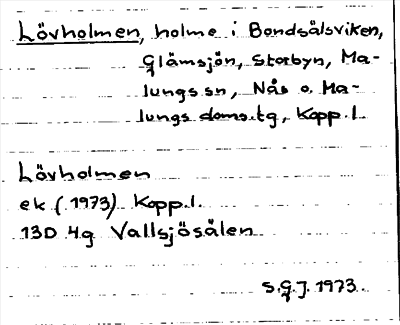 Lövholmen, holme i Bondsälsviken,
Glämsjön, Storbyn, Ma-
lungs sn, Nås o. Ma-
lungs doms.tg, Kopp.l.
Lövholmen
ek (1973) Kopp.l.
13D 4g Vallsjösälen
S.G.J. 1973